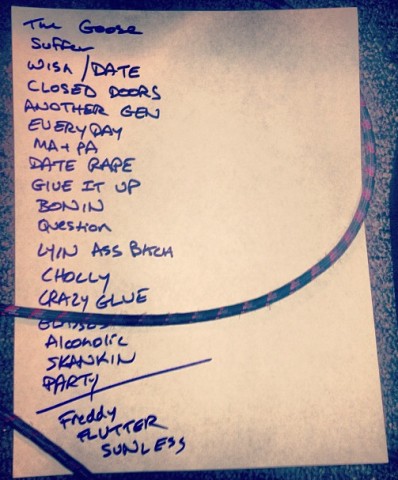 The Goose
Suffer
WISH / DATE
CLOSED DOORS
ANOTHER GEN
EVERYDAY
MA + PA
DATE RAPE
GIVE IT UP
BONIN
Question
LYIN ASS BITCH
CHOLLY
CRAZY GLUE
Alcoholic
SKANKIN
PARTY
Freddy
FLUTTER
SUNLESS